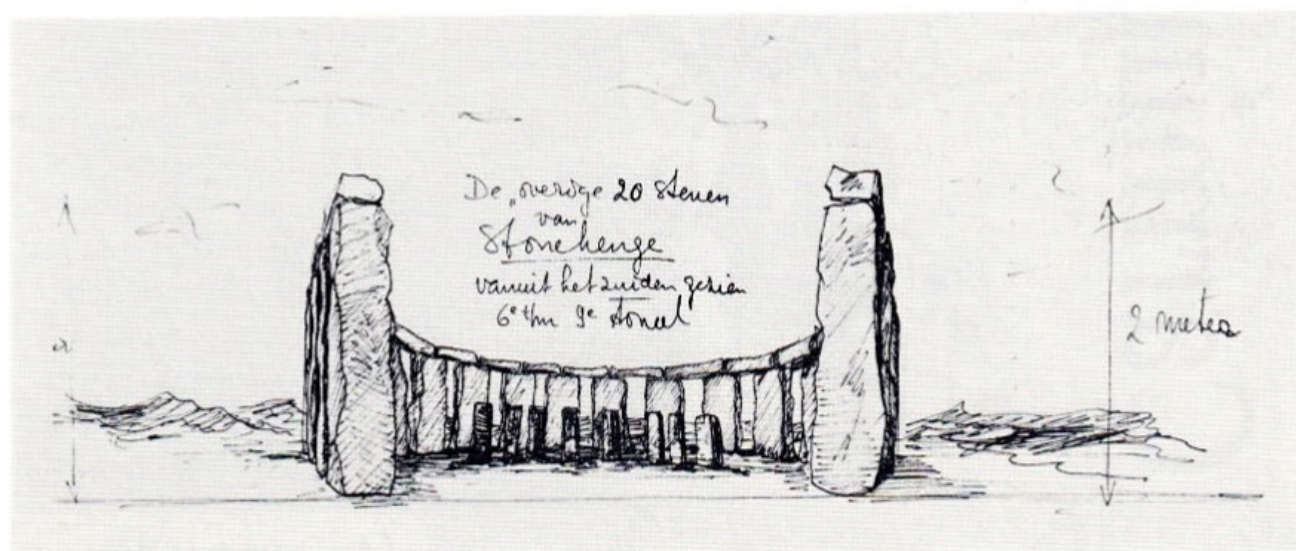 De „overige 20 Stenen
van
Stonehenge
vanuit het zuiden gezien
6e t/m 9e toneel
2 meter